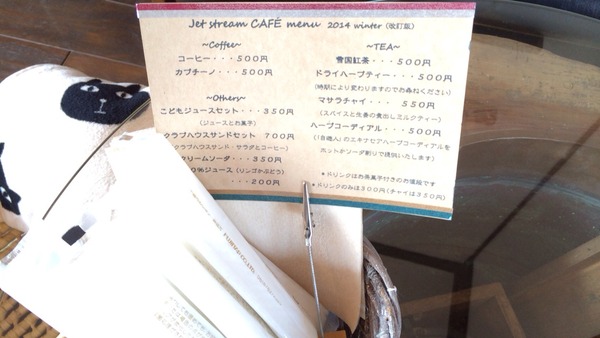 Jet stream CAFÉ menu 2014 winter (改訂版)
~Coffee~
コーヒー・・・500円
カプチーノ・・・500円
~Others~
こどもジュースセット・・・350円
(ジュースとお菓子)
クラブハウスサンドセット 700円
クラブハウスサンド・サラダとコーヒー)
クリームソーダ・・・350円
0%ジュース(リンゴかぶどう)
・・・200円
~TEA~
雪国紅茶・・・500円
ドライハーブティー・・・500円
(時期により変わりますのでお尋ねください)
マサラチャイ・・・ 550円
(スパイスと生姜の煮出しミルクティー)
ハーブコーディアル・・・500円
エキナセアハーブコーディアルを
ホットかソーダ割りで提供いたします)
*ドリンクはお茶菓子付きのお値段です
*ドリンクのみは300円(チャイは350円)